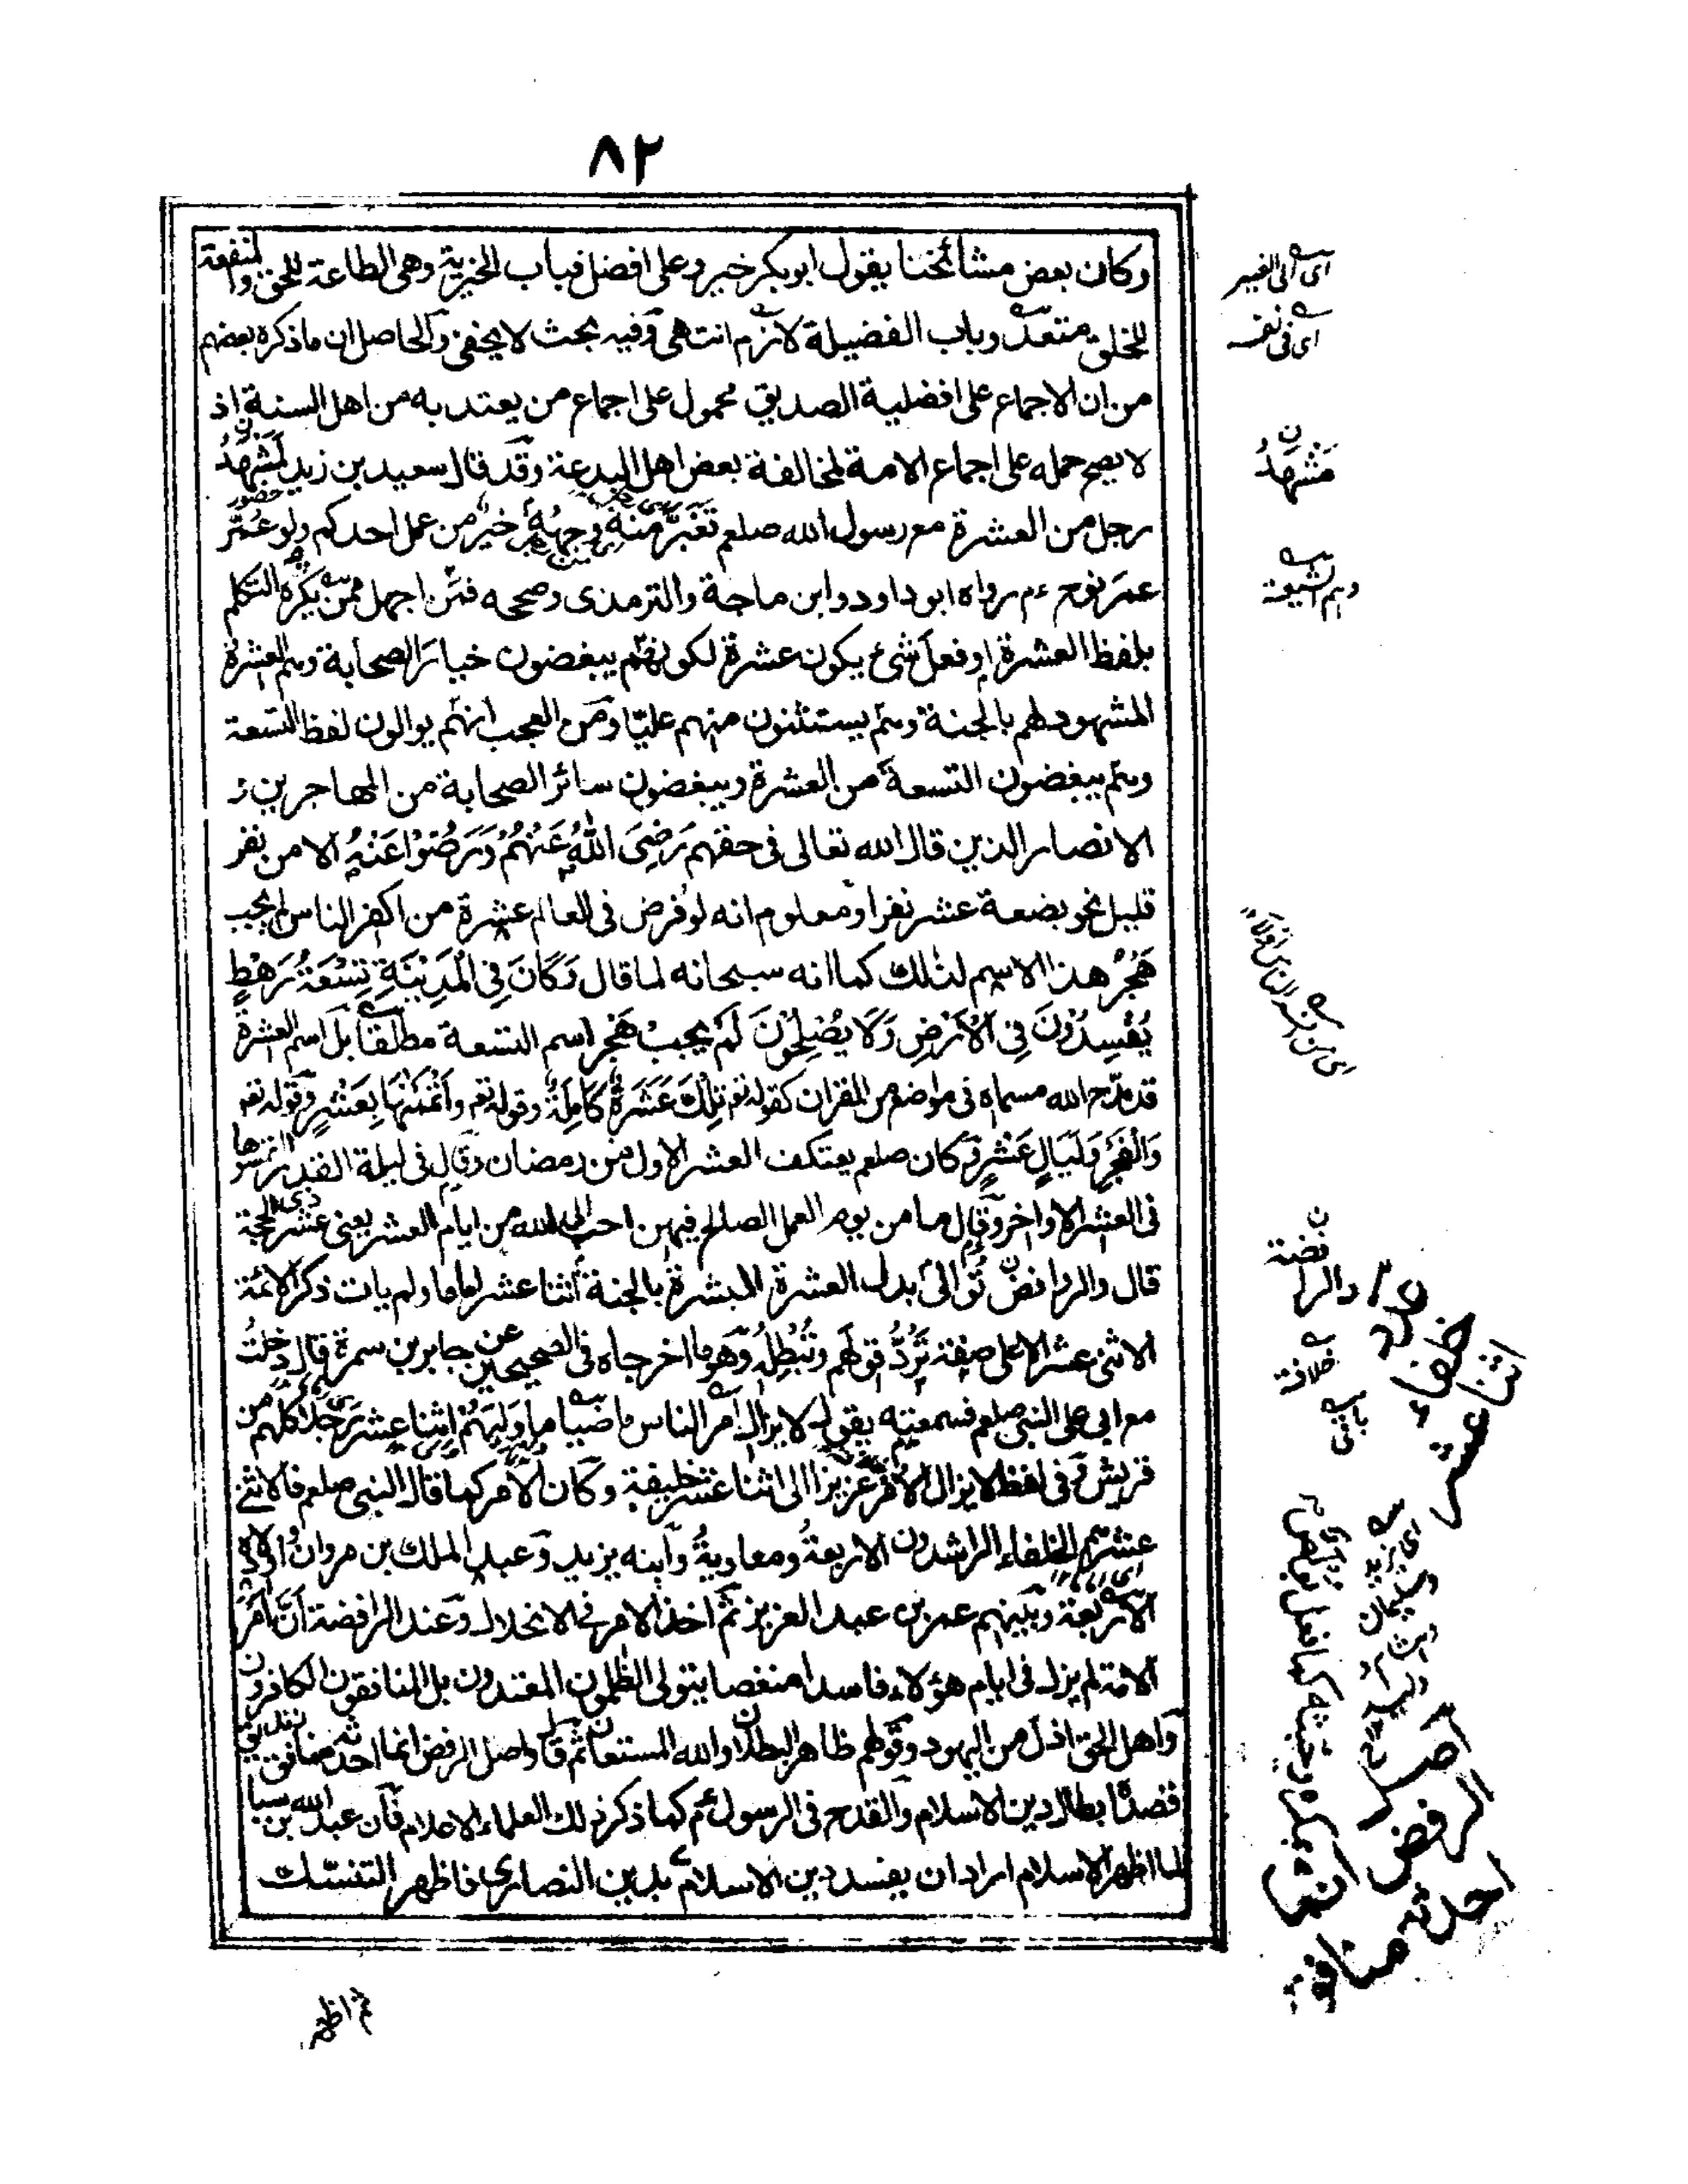 ٨٢
وكان بعض مشائخنا يقول ابوبكر خير وعلى افضل فباب الخيرية وهى الطاعة للحق والمنفعة
للخلق متعد وباب الفضيلة لازم انتهى وفيه بحث لا يخفى والحاصل ان ما ذكره بعضهم
من ان الاجماع على افضلية الصديق محمول على اجماع من يعتد به من اهل السنة اذ
لا يصح حمله على اجماع الامة لمخالفة بعض اهل البدعة وقد قال سعيد بن زيد لَمَشْهَدُ
رجل من العشرة مع رسول الله صلعم تَغَبَّرَ منه وجهُهُ خيرٌ من عمل احدكم ولو عُمِّرَ
عمرَ نوح ءم رواه ابو داود وابن ماجة والترمذى وصححه فمَن اجهل ممن يكره التكلم
بلفظ العشرة او فعلَ شئ يكون عشرة لكونهم يبغضون خيارَ الصحابة وهم العشرة
المشهود لهم بالجنة وهم يستثنون منهم عليّا ومن العجب انهم يوالون لفظ التسعة
وهم يبغضون التسعة من العشرة ويبغضون سائر الصحابة من المهاجرين و
الانصار الذين قال الله تعالى فى حقهم رَضِىَ اللهُ عَنْهُمْ وَرَضُوْا عَنْهُ الا من نفر
قليل نحو بضعة عشر نفرا ومعلوم انه لو فرض فى العالم عشرة من اكفر الناس لم يجب
هَجْرُ هذا الاسم لذلك كما انه سبحانه لما قال وَكَانَ فِى الْمَدِيْنَةِ تِسْعَةُ رَهْطٍ
يُفْسِدُوْنَ فِى الْاَرْضِ وَلَا يُصْلِحُوْنَ لَمْ يجبْ هَجْر اسم التسعة مطلقا بل اسم العشرة
قد مدح الله مسماه فى مواضع من القران كقوله تعم تِلْكَ عَشَرَةٌ كَامِلَةٌ وقوله تعم وَاَتْمَمْنٰهَا بِعَشْرٍ وقوله تعم
وَالْفَجْرِ وَلَيَالٍ عَشْرٍ وكان صلعم يعتكف العشر الاول من رمضان وقال فى ليلة القدر التمسوها
فى العشر الاواخر وقال ما من يوم العمل الصالح فيهن احب الى الله من ايام العشر يعنى عشر ذى الحجة
قال والروافض تُوالى بدل العشرة المبشرة بالجنة اثنا عشر اماما ولم يات ذكر الائمة
الاثنى عشر الا على صفة تَرُدُّ قولهم وتُبْطِلُهُ وهو ما اخرجاه فى الصحيحين عن جابر بن سمرة قال دخلتُ
مع ابى على النبى صلعم فسمعته يقول لا يزال امر الناس ماضيا ما وَلِيَهُمْ اثنا عشر رجلا كلهم من
قريش وفى لفظ لا يزال الامر عزيزا الى اثنا عشر خليفة وكان الامر كما قال النبى صلعم فالاثنى
عشر هم الخلفاء الراشدون الاربعةُ ومعاويةُ وابنه يزيد وعبد الملك بن مروان واولاده
الاربعة وبينهم عمر بن عبد العزيز ثم اخذ الامر فى الانحلال وعند الرافضة انّ امرَ
الامة لم يزل فى ايام هؤلاء فاسدا منغصا يتولى الظلمون المعتدون بل المنافقون الكافرون
واهل الحق اذل من اليهود وقولهم ظاهر البطلان والله المستعان ثم قال واصل الرفض انما احدثه منافق زنديق
قصدًا بطال دين الاسلام والقدح فى الرسول ءم كما ذكر ذلك العلماء الاعلام فان عبد الله بن سبا
لما اظهر الاسلام اراد ان يفسد دين الاسلام بدين النصارى فاظهر التنسك
اى الى الغير
اى فى نفسه
ن
مَشْهَدُ
وهم الشيعة
ن
والرافضة
عدد
خلفاء
اثنا عشر
خلافة
اصل
الرفض انما
احدثه منافق
ثم اظهر